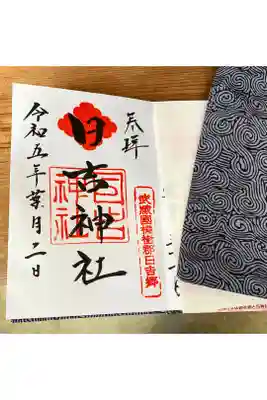 奉拝
武蔵國橘樹郡日吉郷
日吉神社
日吉
神社
令和五年葉月二日